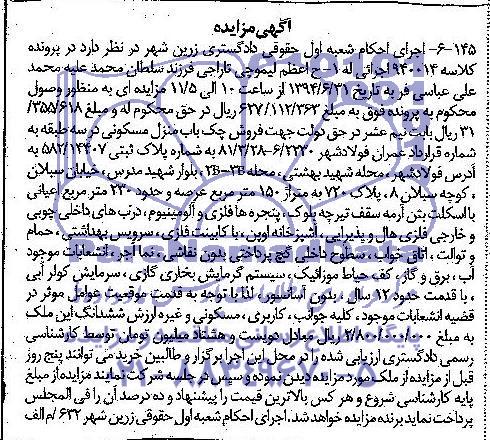 آگهی مزایده
۱۴۵-۶- اجرای احکام شعبه اول حقوقی دادگستری زرین شهر در نظر دارد در پرونده
کلاسه ۹۴۰۰۱۴ اجرائی له اعظم لیموچی تاراجی فرزند سلطان محمد علیه محمد
علی عباسی فر به تاریخ ۱۳۹۴/۶/۳۱ از ساعت ۱۰ الی ۱۱/۵ مزایده ای به منظور وصول
محکوم به پرونده فوق به مبلغ ۶۲۷/۱۱۲/۳۶۳ ریال در حق محکوم له و مبلغ ۳۵۵/۶۱۸/
۳۱ ریال بابت نیم عشر در حق دولت جهت فروش یک باب منزل مسکونی در سه طبقه به
شماره قرارداد عمران فولادشهر ۶/۲۳۳۰-۸۱/۲/۲۸ به شماره پلاک ثبتی ۵۸۲/۱۴۴۰۷ به
آدرس فولادشهر، محله شهید بهشتی، محله ۳B-۲B، بلوار شهید مدرس، خیابان سبلان
، کوچه سبلان ۸، پلاک ۷۲۰ به متراژ ۱۵۰ متر مربع عرصه و حدود ۲۳۰ متر مربع اعیانی
با اسکلت بتن آرمه سقف تیرچه بلوک، پنجره ها فلزی و آلومینیوم، درب های داخلی چوبی
و خارجی فلزی، هال و پذیرایی، آشپزخانه اوپن، با کابینت فلزی، سرویس بهداشتی، حمام
و توالت، اتاق خواب، سطوح داخلی گچ پرداختی بدون نقاشی، نما آجر، انشعابات موجود
آب، برق و گاز، کف حیاط موزائیک، سیستم گرمایش بخاری گازی، سرمایش کولر آبی
، با قدمت حدود ۱۲ سال، بدون آسانسور، لذا با توجه به قدمت موقعیت عوامل موثر در
قضیه انشعابات موجود، کلیه جوانب، کاربری، مسکونی و غیره ارزش ششدانگ این ملک
به مبلغ ۲/۸۰۰/۰۰۰/۰۰۰ ریال معادل دویست و هشتاد میلیون تومان توسط کارشناسی
رسمی دادگستری ارزیابی شده را در محل این اجرا برگزار و طالبین خرید می توانند پنج روز
قبل از مزایده از ملک مورد مزایده دیدن نموده و سپس در جلسه شرکت نمایند مزایده از مبلغ
پایه کارشناسی شروع و هر کس بالاترین قیمت را پیشنهاد و ده درصد آن را فی المجلس
پرداخت نماید برنده مزایده خواهد شد. اجرای احکام شعبه اول حقوقی زرین شهر ۶۳۲/م الف